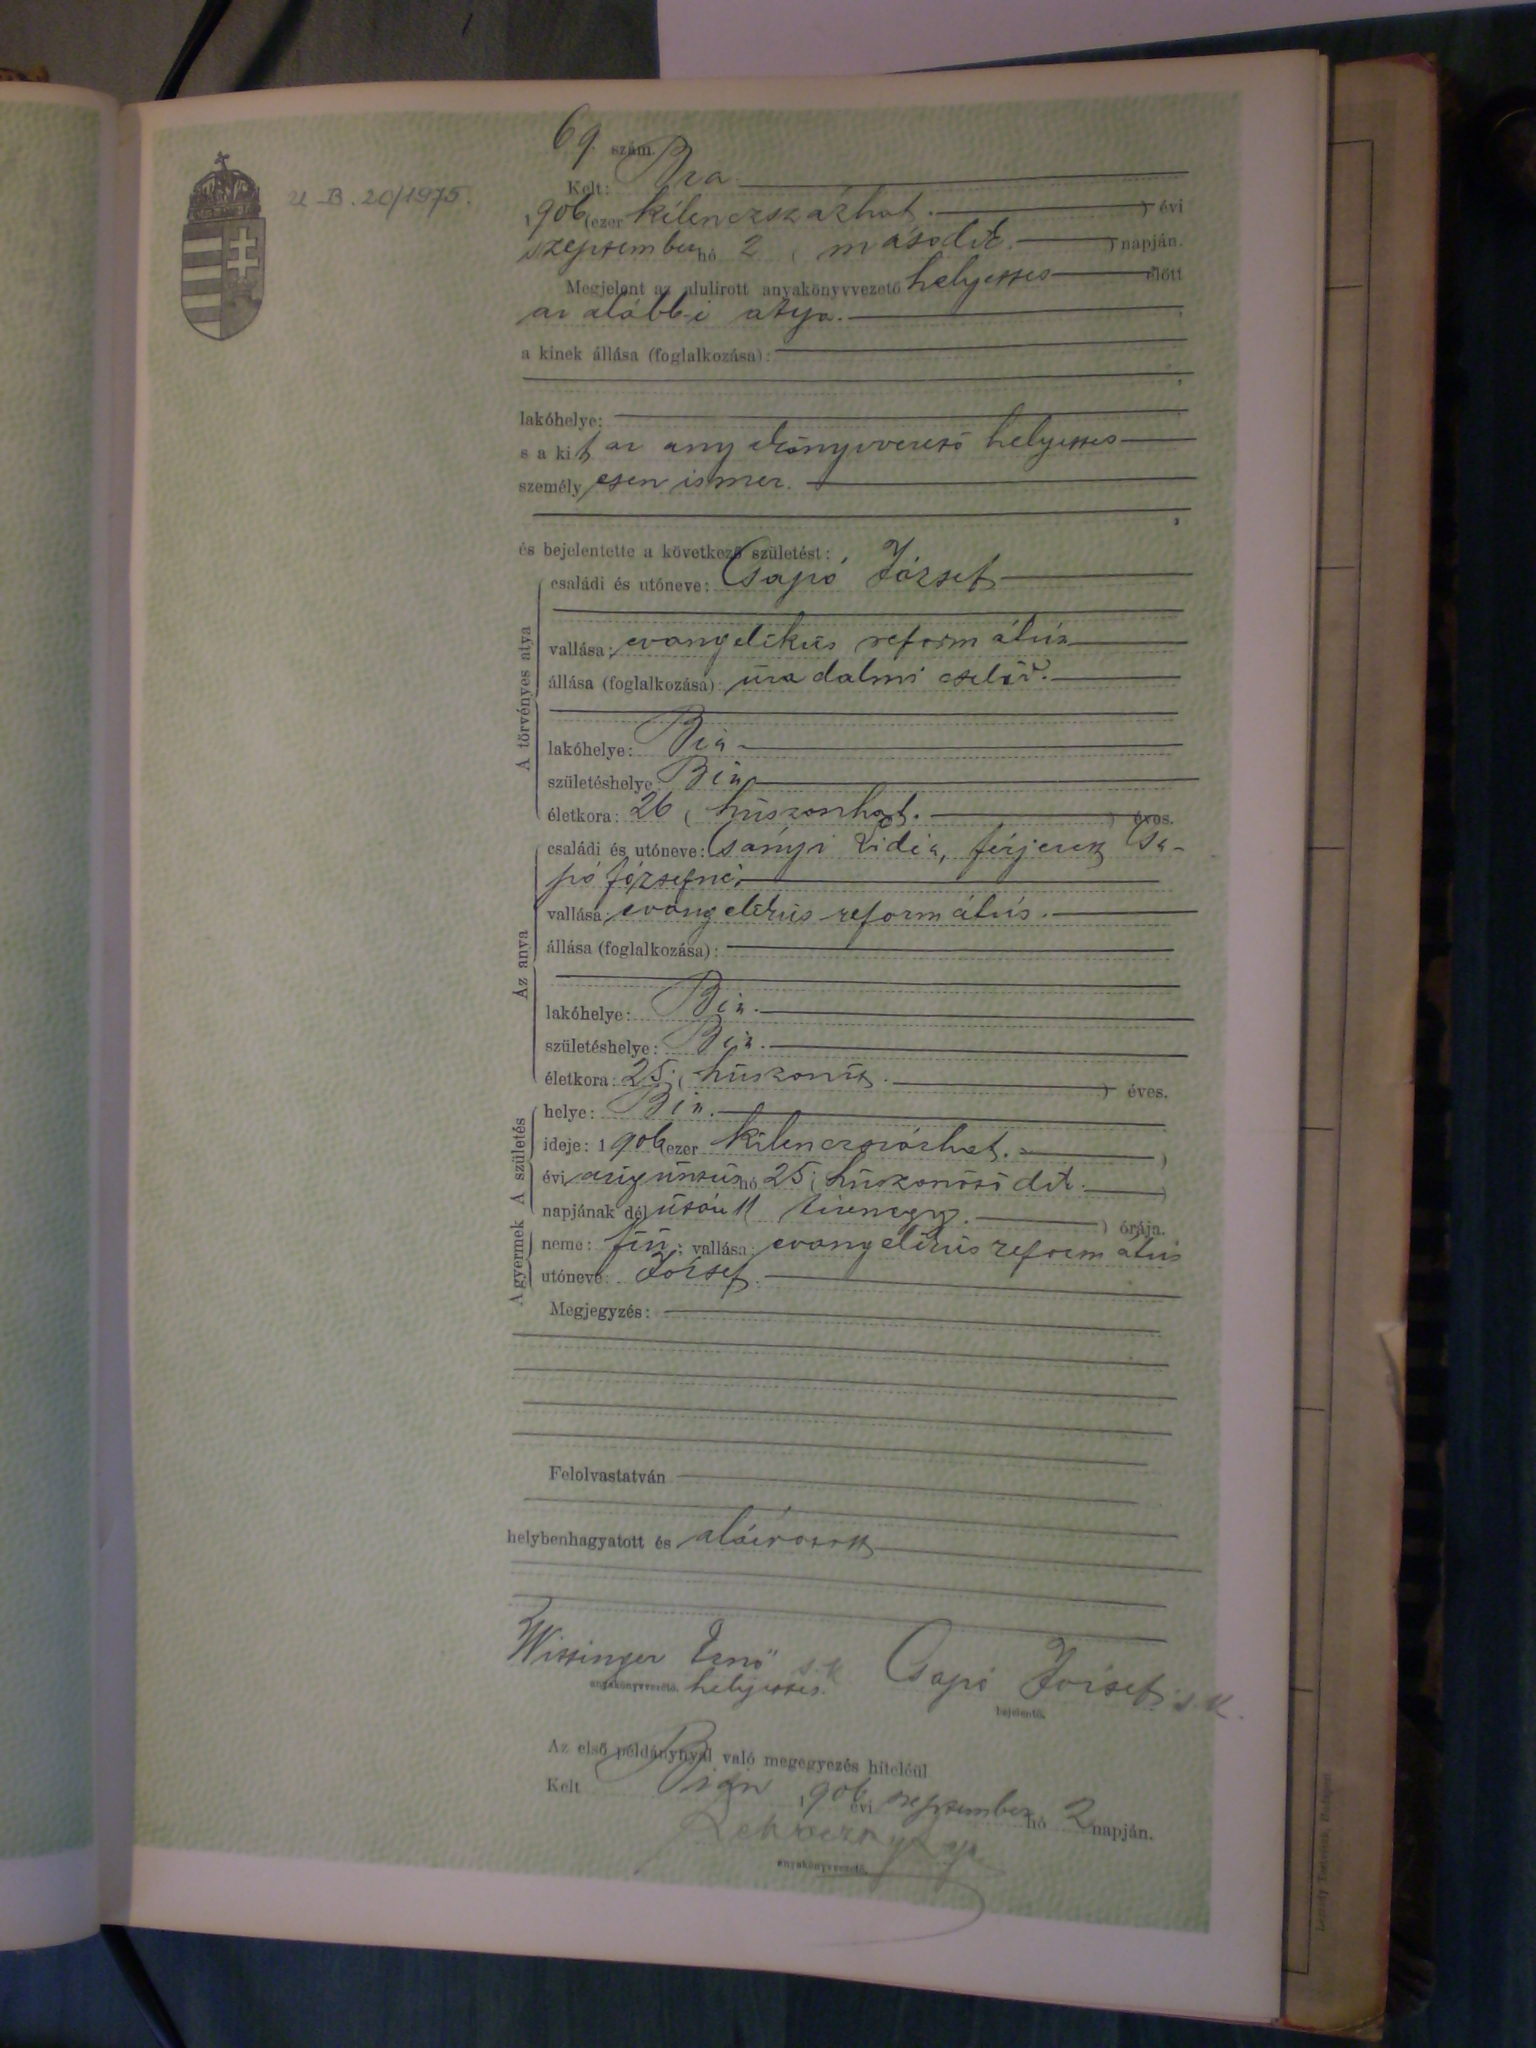 69. szám.
U-B. 20/1975.
Kelt: Bia
1906 (ezer kilenczszázhat.) évi
szeptember hó 2 (második.) napján.
Megjelent az alulirott anyakönyvvezető helyettes előtt
az alábbi atya.
a kinek állása (foglalkozása):
lakóhelye:
s a kit az anyakönyvvezető helyettes
személyesen ismer.
és bejelentette a következő születést:
A törvényes atya
családi és utóneve: Csapó József
vallása: evangelikus református
állása (foglalkozása): uradalmi cseléd.
lakóhelye: Bia
születéshelye Bia
életkora: 26 (huszonhat.) éves.
Az anya
családi és utóneve: Csányi Lidia, férjezett Csa-
pó Józsefné,
vallása: evangelikus református.
állása (foglalkozása):
lakóhelye: Bia.
születéshelye: Bia.
életkora: 25 (huszonöt.) éves.
A születés
helye: Bia.
ideje: 1906 (ezer kilenczszázhat.)
évi augusztus hó 25 (huszonötödik.)
napjának délután 11 (tizenegy.) órája.
A gyermek
neme: fiú; vallása: evangelikus református
utóneve: József.
Megjegyzés:
Felolvastatván
helybenhagyatott és aláiratott
Wissinger Ernő s.k. Csapó József s.k.
anyakönyvvezető. helyettes. bejelentő.
Az első példánynyal való megegyezés hiteléül
Kelt Bián 1906 évi szeptember hó 2 napján.
anyakönyvvezető.